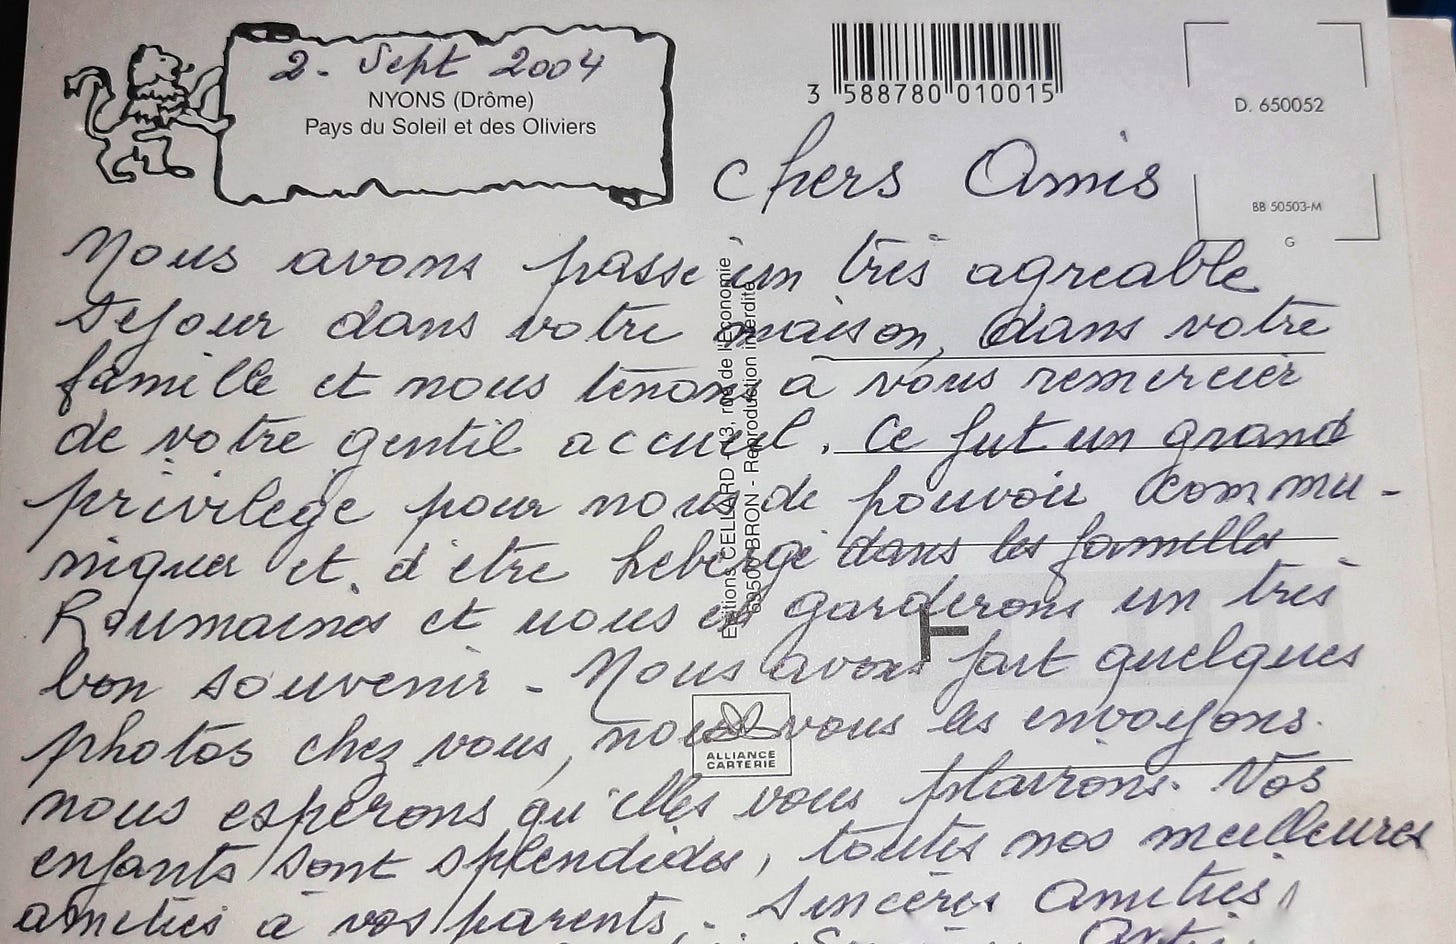 2. Sept 2004
NYONS (Drôme)
Pays du Soleil et des Oliviers
3 588780 010015
D. 650052
BB 50503-M
G
Chers Amis
Nous avons passe un très agreable
sejour dans votre maison, dans votre
famille et nous tenons a vous remercier
de votre gentil accueil. Ce fut un grand
privilège pour nous de pouvoir commu-
niquer et d'etre hebergé dans les familles
Roumaines et nous en garderons un très
bon souvenir - Nous avons fait quelques
photos chez vous, nous vous les envoyons.
nous esperons qu'elles vous plairons. Vos
enfants sont splendides, toutes nos meilleures
amitiés à vos parents. Sincères amitiés
Editions CELLARD - 13, rue de l'Economie
69500 BRON - Reproduction interdite
ALLIANCE
CARTERIE